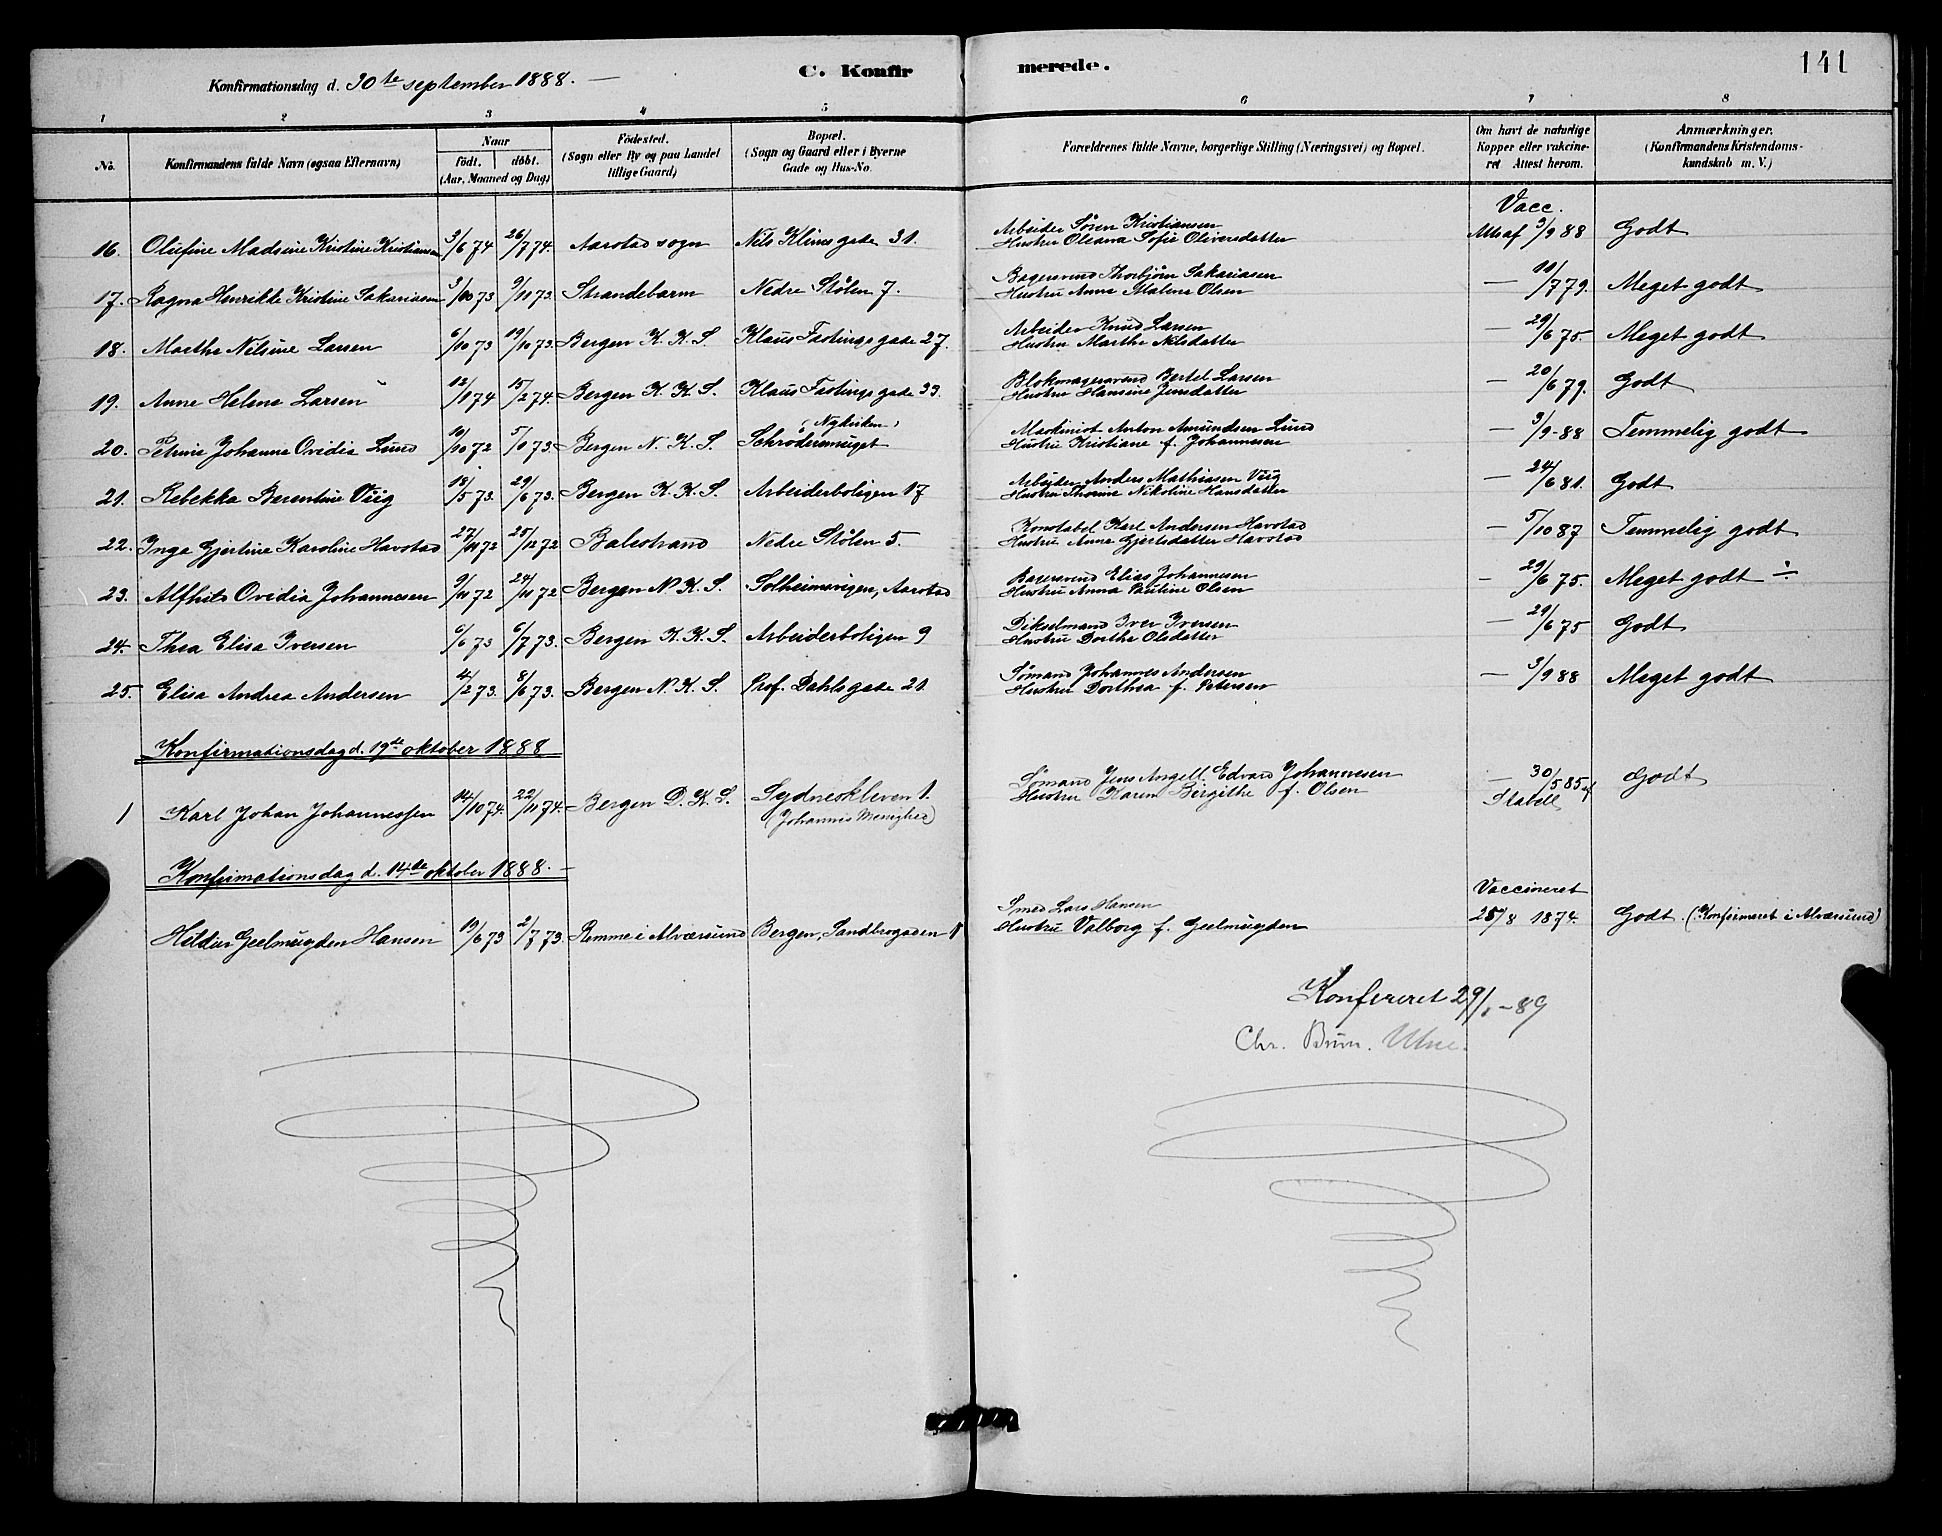 141
Konfirmationsdag d. 30te september 1888. —
C. Konfirmerede.
1 2 3 4 5 6 7 8
No. Konfirmandens fulde Navn (ogsaa Efternavn) Naar født. døbt. (Aar, Maaned og Dag) Fødested. (Sogn eller By og paa Landet tillige Gaard) Bopæl. (Sogn og Gaard eller i Byerne Gade og Hus-No. Forældrenes fulde Navne, borgerlige Stilling (Næringsvei) og Bopæl. Om havt de naturlige Kopper eller vakcineret Attest herom. Anmærkninger. (Konfirmandens Kristendomskundskab m. V.)
Vacc.
16. Olufine Madsine Kristine Kristiansen 3/6 74 26/7 74. Aarstad sogn Nils Klims gade 31. Arbeider Sören Kristiansen Hustru Oleana Sofie Oliversdatter Att. af 3/9 88 Godt
17. Ragna Henrikke Kristine Sakariasen 3/10 73 9/11 73. Strandebarm Nedre Stölen 7. Bagersvend Thorbjörn Sakariasen Hustru Anna Malene Olsen — 11/7 79. Meget godt
18. Marthe Nilsine Larsen 6/10 73 19/10 73. Bergen K. K. S. Klaus Fastings gade 27. Arbeider Knud Larsen Hustru Marthe Nilsdatter — 29/6 75. Meget godt
19. Anne Helene Larsen 12/1 74 15/2 74. Bergen K. K. S. Klaus Fastings gade 33. Blokmagersvend Bertel Larsen Hustru Hansine Jensdatter — 20/6 79. Godt
20. Petrine Johanne Ovidia Lund 10/10 72 5/1 73. Bergen N. K. S. Schrödersmuget (Nyhviken) Maskinist Anton Amundsen Lund Hustru Kristiane f. Johannesen — 3/9-88 Temmelig godt
21. Rebekka Berentine Viig 18/5 73. 29/6 73. Bergen K. K. S. Arbeiderboligen 17 Arbeider Anders Mathiasen Viig Hustru Thorine Nikoline Hansdatter — 24/6 81. Godt
22. Inga Gjertine Karoline Havstad 27/11 72 25/12 72 Balestrand Nedre Stölen 5. Konstabel Karl Andersen Havstad Hustru Anne Gjertsdatter Havstad — 5/10 87 Temmelig godt
23. Alfhild Ovidia Johannesen 9/11 72 24/11 72 Bergen N. K. S. Solheimsvigen, Aarstad Bagersvend Elias Johannesen Hustru Anna Pauline Olsen — 29/6 75. Meget godt ÷
24. Thea Elisa Iversen 6/6 73 6/7 73. Bergen K. K. S. Arbeiderboligen 9 Dikselmand Iver Iversen Hustru Dorthe Olsdatter — 29/6 75 Godt
25. Elisa Andrea Andersen 4/2 73. 8/6 73. Bergen N. K. S. Prof. Dahls gade 21. Sömand Johannes Andersen Hustru Dorthea f. Petersen — 3/9 88 Meget godt
Konfirmationsdag d. 19de oktober 1888
1 Karl Johan Johannessen 14/10 74. 22/11 74. Bergen D. K. S. Sydneskleven 1. (Johannis Menighed) Sömand Jens Angell Edvard Johannesen Hustru Karen Birgithe f. Olsen — 30/5 85 af Stabell Godt
Konfirmationsdag d. 14de oktober 1888. —
Hildur Geelmuyden Hansen 19/6 73 2/7 73. Remme i Alværsund Bergen, Sandbrogaden Smed Lars Hansen Hustru Valborg f. Geelmuyden Vaccineret 25/8 1874. Godt. (Konfirmeret i Alværsund)
Konfereret 29/1-89
Chr. Bruun. Utne.